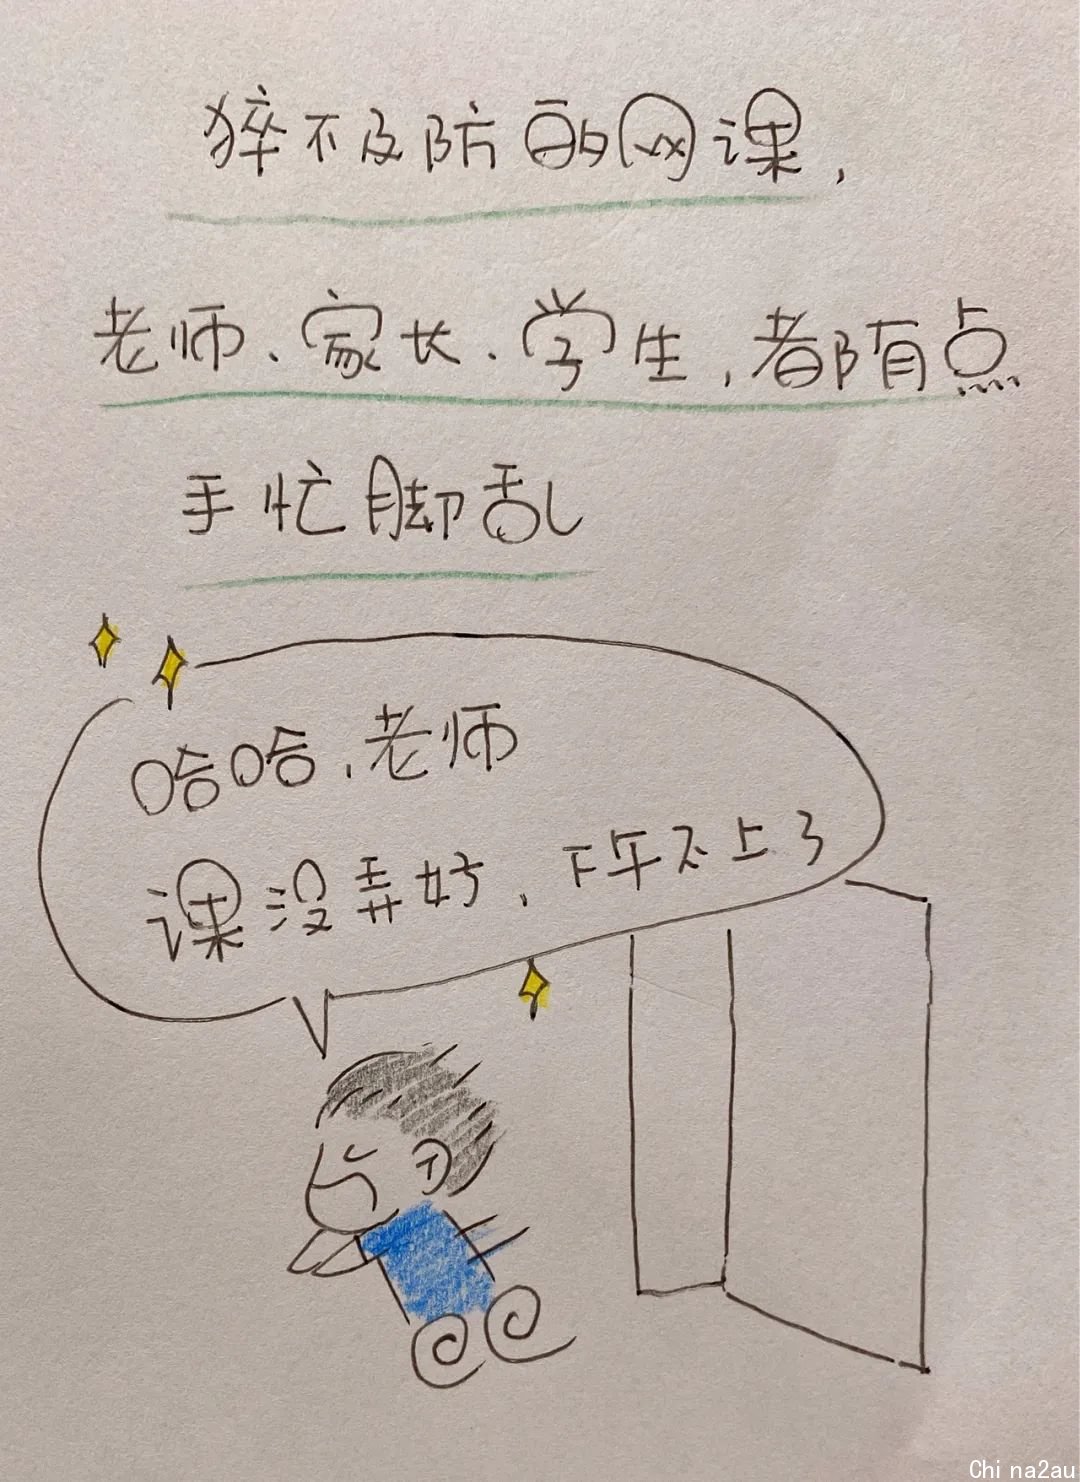 猝不及防的网课,
老师、家长、学生,都有点
手忙脚乱
哈哈,老师
课没弄好,下午不上了
Chi na2au